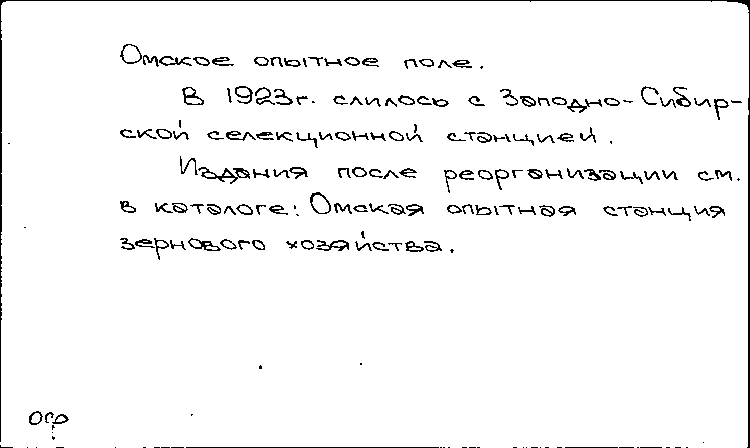 Омское опытное поле.
В 1923г. слилось с Западно-Сибир-
ской селекционной станцией.
Издания после реорганизации см.
в каталоге: Омская опытная станция
зернового хозяйства.